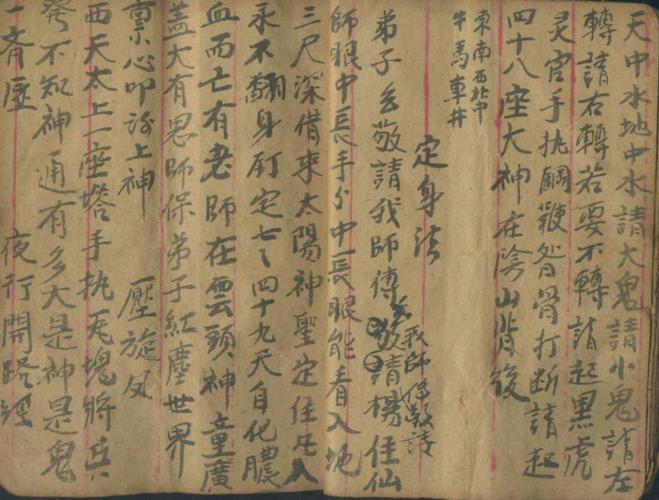 天中水地中水請大鬼請小鬼請左
轉請右轉若要不轉請起黑虎
灵官手执鋼鞭脊骨打断請起
四十八座大神在陰山背後
東南西北中
牛馬車井
定身法
弟子 敬請我師傅 敬請楊任仙
我師傅敬請
師眼中長手手中長眼能看入地
三尺深借來太陽神聖定住凡人
永不翻身釘定七七四十九天自化膿
血而亡有老師在雲頭神童廣
蓋大有恩師保弟子紅塵世界
東 心叩 上神
壓旋風
西天太上一座塔手执瓦塊將兵
發不知神通有多大是神是鬼
一齊壓
夜行開路經